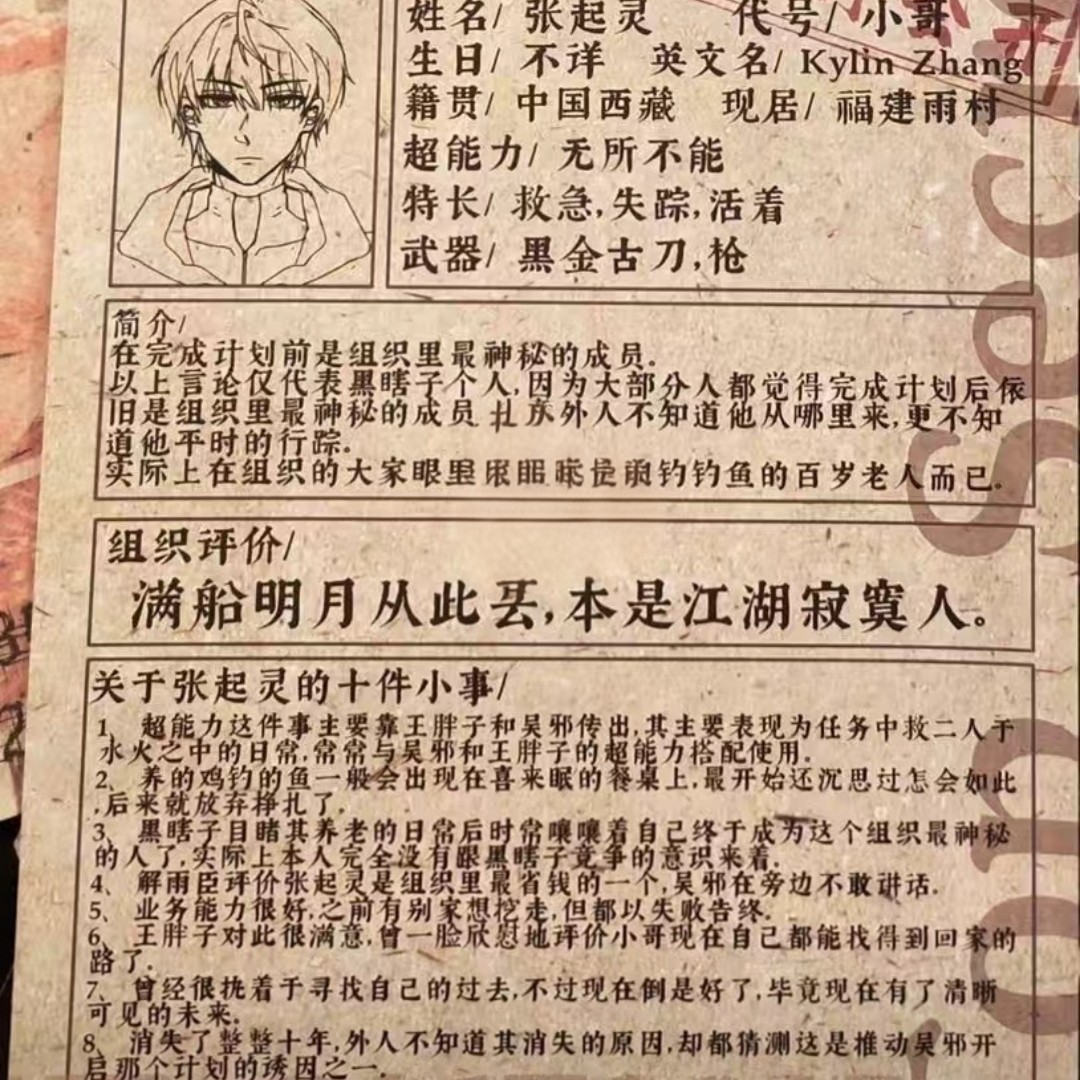 姓名/ 张起灵 代号/ 小哥
生日/ 不详 英文名/ Kylin Zhang
籍贯/ 中国西藏 现居/ 福建雨村
超能力/ 无所不能
特长/ 救急,失踪,活着
武器/ 黑金古刀,枪
简介/
在完成计划前是组织里最神秘的成员.
以上言论仅代表黑瞎子个人,因为大部分人都觉得完成计划后依
旧是组织里最神秘的成员 外人不知道他从哪里来,更不知
道他平时的行踪.
实际上在组织的大家眼里 钓钓鱼的百岁老人而已.
组织评价/
满船明月从此去,本是江湖寂寞人。
关于张起灵的十件小事/
1、超能力这件事主要靠王胖子和吴邪传出,其主要表现为任务中救二人于
水火之中的日常,常常与吴邪和王胖子的超能力搭配使用.
2、养的鸡钓的鱼一般会出现在喜来眠的餐桌上,最开始还沉思过怎会如此
,后来就放弃挣扎了.
3、黑瞎子目睹其养老的日常后时常嚷嚷着自己终于成为这个组织最神秘
的人了,实际上本人完全没有跟黑瞎子竞争的意识来着.
4、解雨臣评价张起灵是组织里最省钱的一个,吴邪在旁边不敢讲话.
5、业务能力很好,之前有别家想挖走,但都以失败告终.
6、王胖子对此很满意,曾一脸欣慰地评价小哥现在自己都能找得到回家的
路了.
7、曾经很执着于寻找自己的过去,不过现在倒是好了,毕竟现在有了清晰
可见的未来.
8、消失了整整十年,外人不知道其消失的原因,却都猜测这是推动吴邪开
启那个计划的诱因之一.